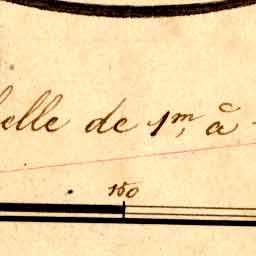 elle de 1m, à
150